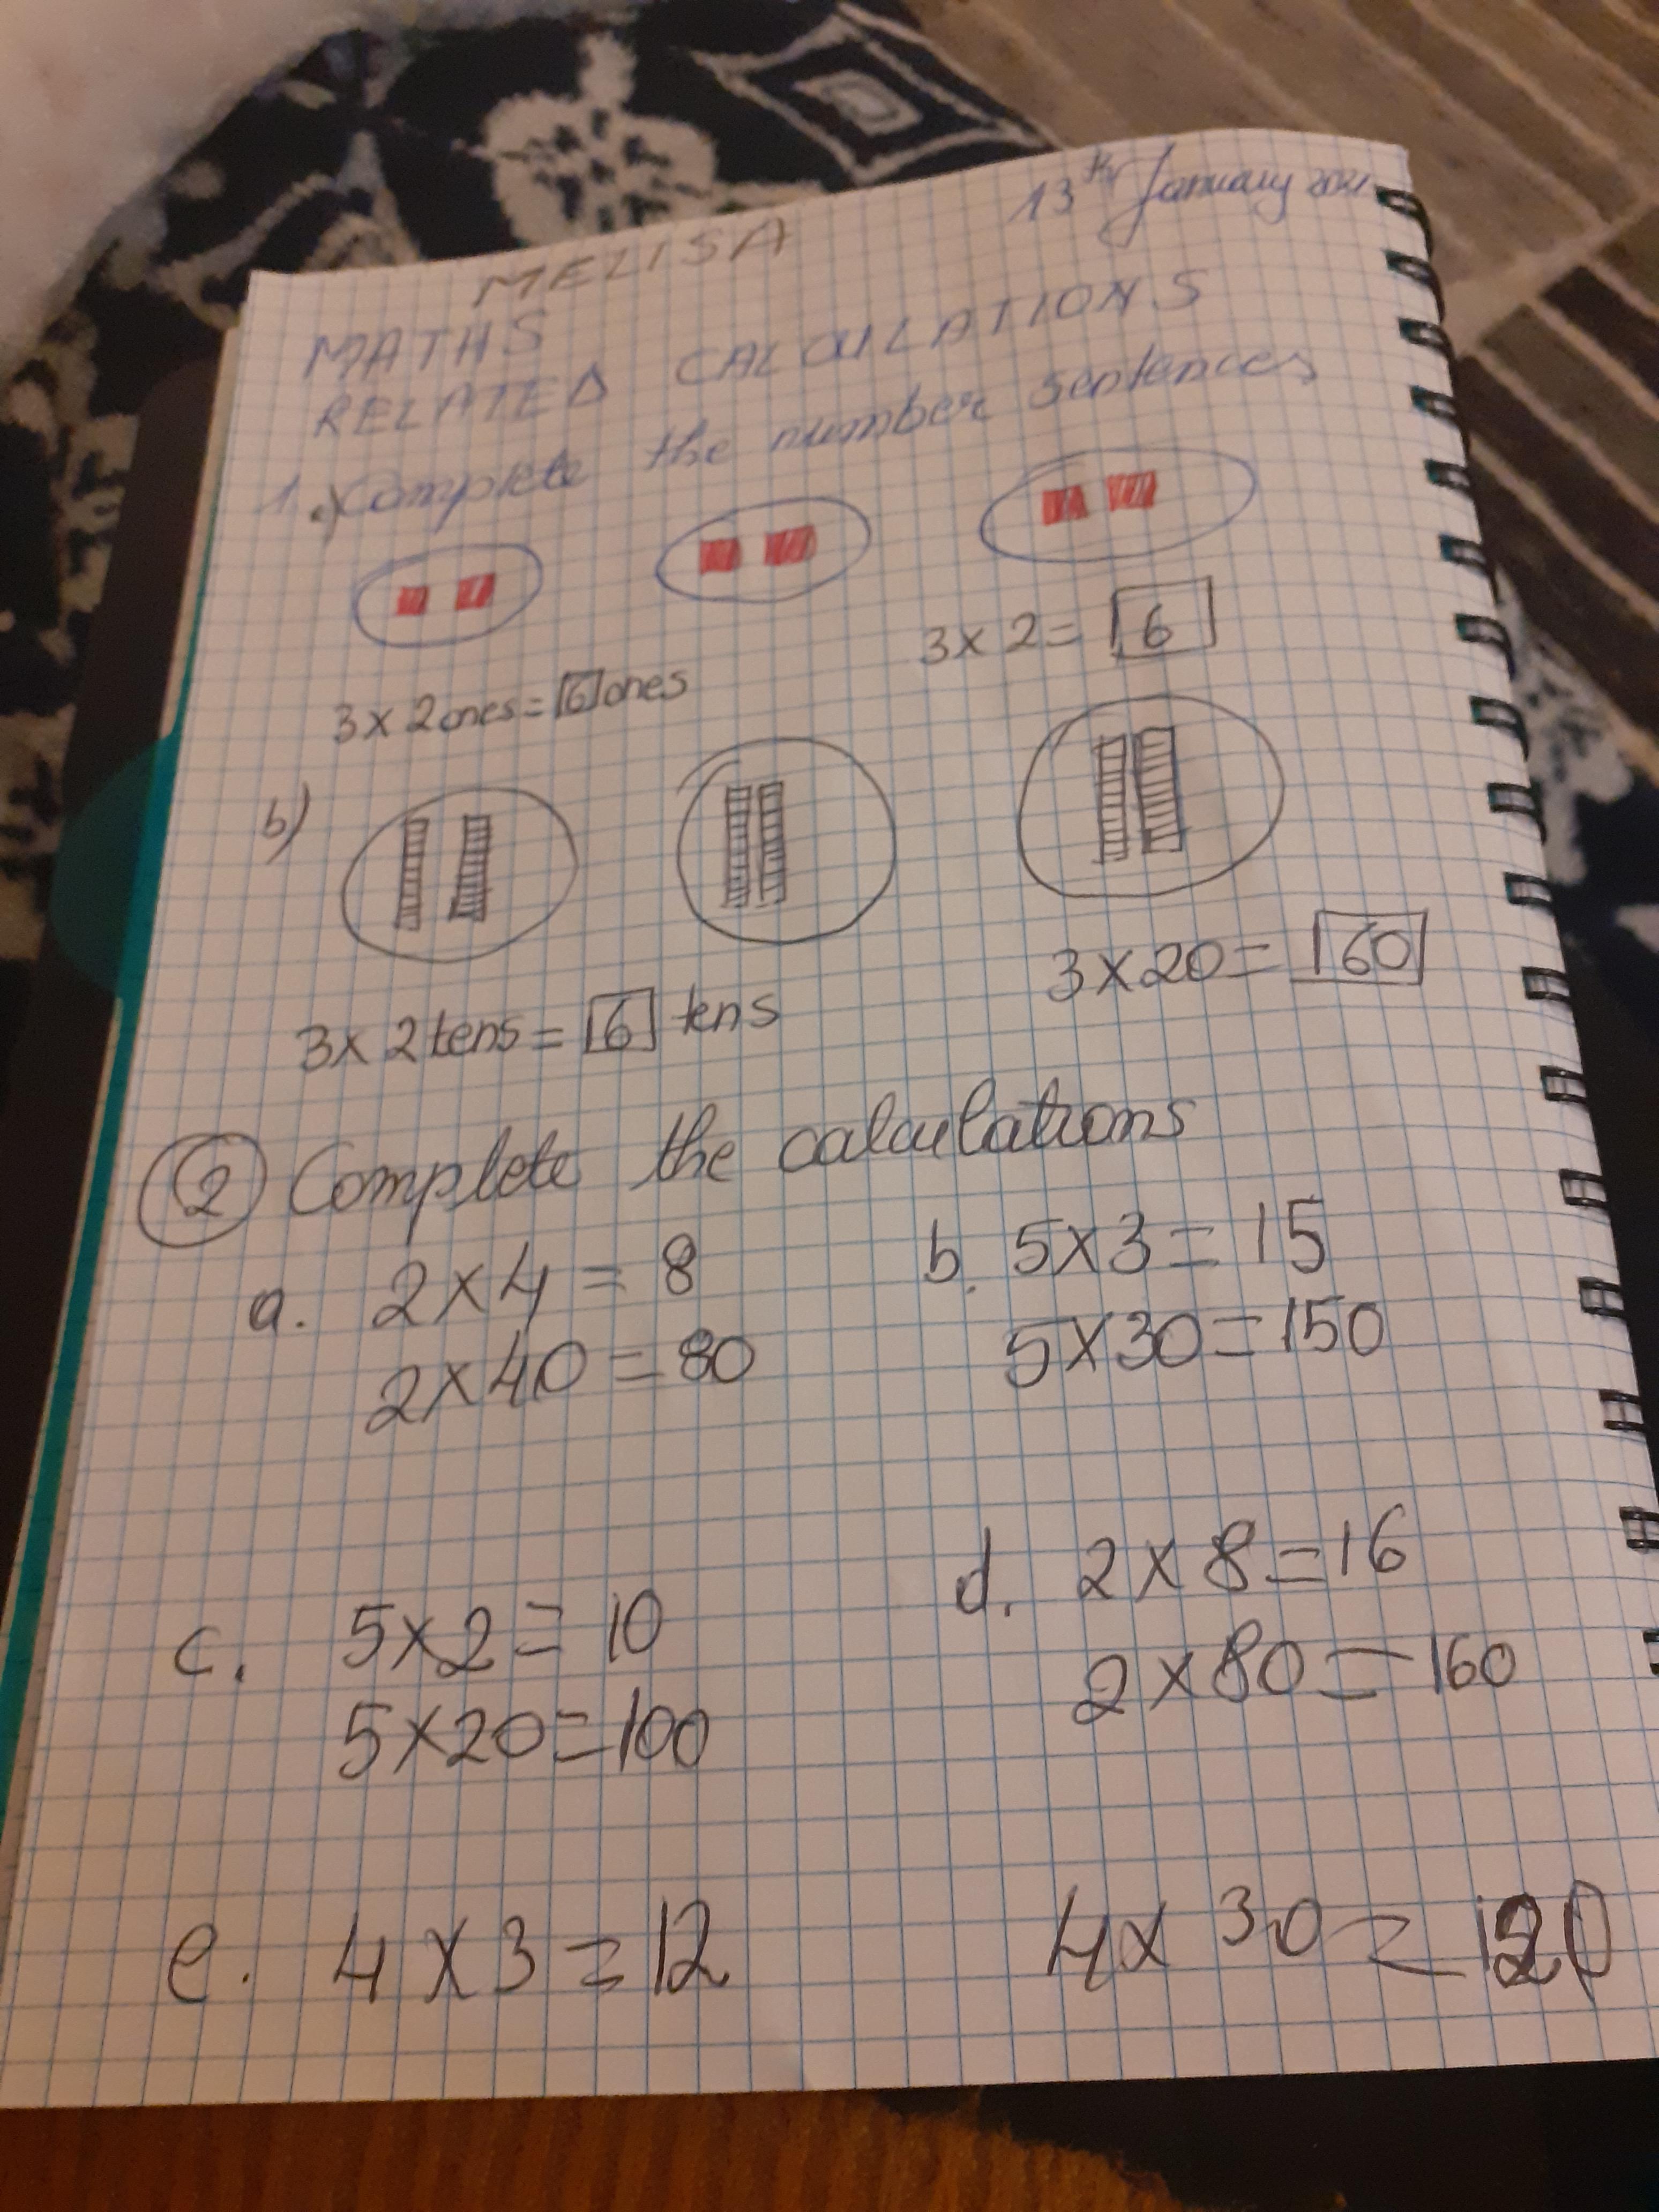 13th January 2021
MELISA
MATHS
RELATED CALCULATIONS
1. a) Complete the number sentences
3 x 2 ones = 6 ones
3 x 2 = 6
b)
3 x 2 tens = 6 tens
3 x 20 = 60
2 Complete the calculations
a. 2 x 4 = 8
2 x 40 = 80
b. 5 x 3 = 15
5 x 30 = 150
c. 5 x 2 = 10
5 x 20 = 100
d. 2 x 8 = 16
2 x 80 = 160
e. 4 x 3 = 12
4 x 30 = 120